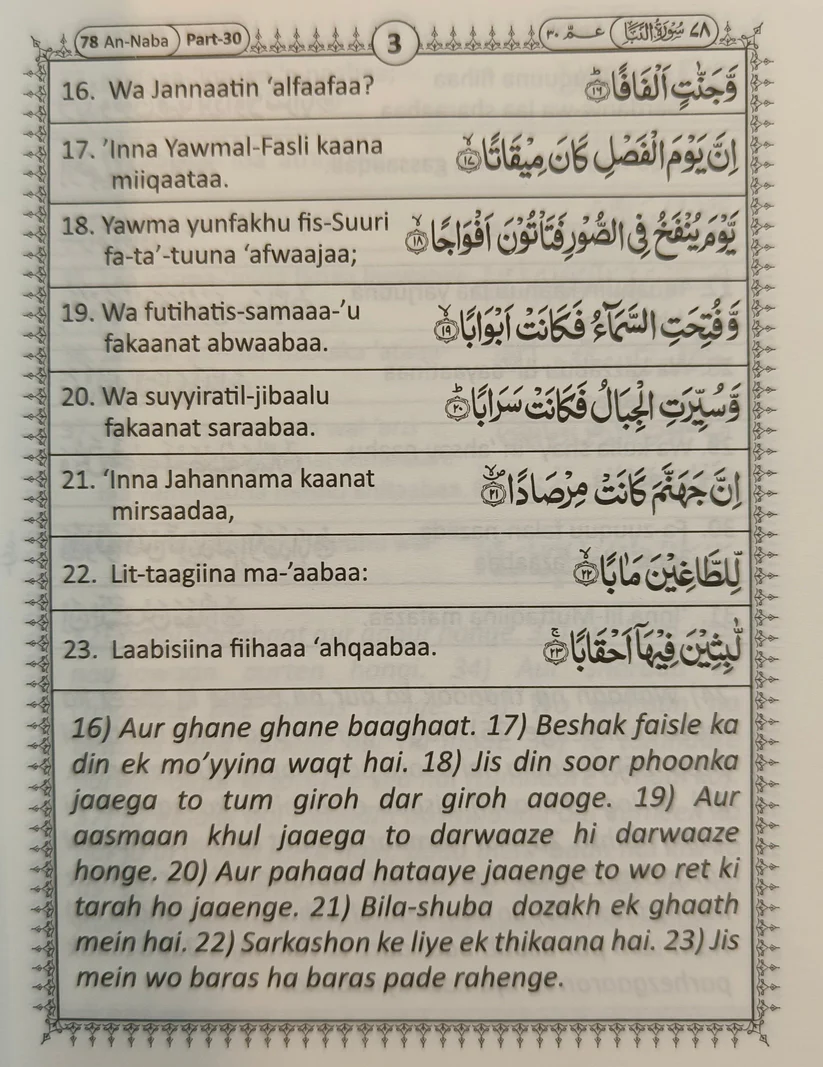 78 An-Naba Part-30 3 عـمّ ٣٠ ٧٨ سُوْرَةُ النَّبَاِ
16. Wa Jannaatin ‘alfaafaa? وَّجَنّٰتٍ اَلْفَافًا ؕ﴿١٦﴾
17. ’Inna Yawmal-Fasli kaana اِنَّ يَوْمَ الْفَصْلِ كَانَ مِيْقَاتًا ۙ﴿١٧﴾
miiqaataa.
18. Yawma yunfakhu fis-Suuri يَّوْمَ يُنْفَخُ فِى الصُّوْرِ فَتَاْتُوْنَ اَفْوَاجًا ۙ﴿١٨﴾
fa-ta’-tuuna ‘afwaajaa;
19. Wa futihatis-samaaa-’u وَّفُتِحَتِ السَّمَآءُ فَكَانَتْ اَبْوَابًا ۙ﴿١٩﴾
fakaanat abwaabaa.
20. Wa suyyiratil-jibaalu وَّسُيِّرَتِ الْجِبَالُ فَكَانَتْ سَرَابًا ؕ﴿٢٠﴾
fakaanat saraabaa.
21. ‘Inna Jahannama kaanat اِنَّ جَهَنَّمَ كَانَتْ مِرْصَادًا ۙ﴿٢١﴾
mirsaadaa,
22. Lit-taagiina ma-’aabaa: لِّلطَّاغِيْنَ مَاٰبًا ۙ﴿٢٢﴾
23. Laabisiina fiihaaa ‘ahqaabaa. لّٰبِثِيْنَ فِيْهَآ اَحْقَابًا ۚ﴿٢٣﴾
16) Aur ghane ghane baaghaat. 17) Beshak faisle ka
din ek mo’yyina waqt hai. 18) Jis din soor phoonka
jaaega to tum giroh dar giroh aaoge. 19) Aur
aasmaan khul jaaega to darwaaze hi darwaaze
honge. 20) Aur pahaad hataaye jaaenge to wo ret ki
tarah ho jaaenge. 21) Bila-shuba dozakh ek ghaath
mein hai. 22) Sarkashon ke liye ek thikaana hai. 23) Jis
mein wo baras ha baras pade rahenge.